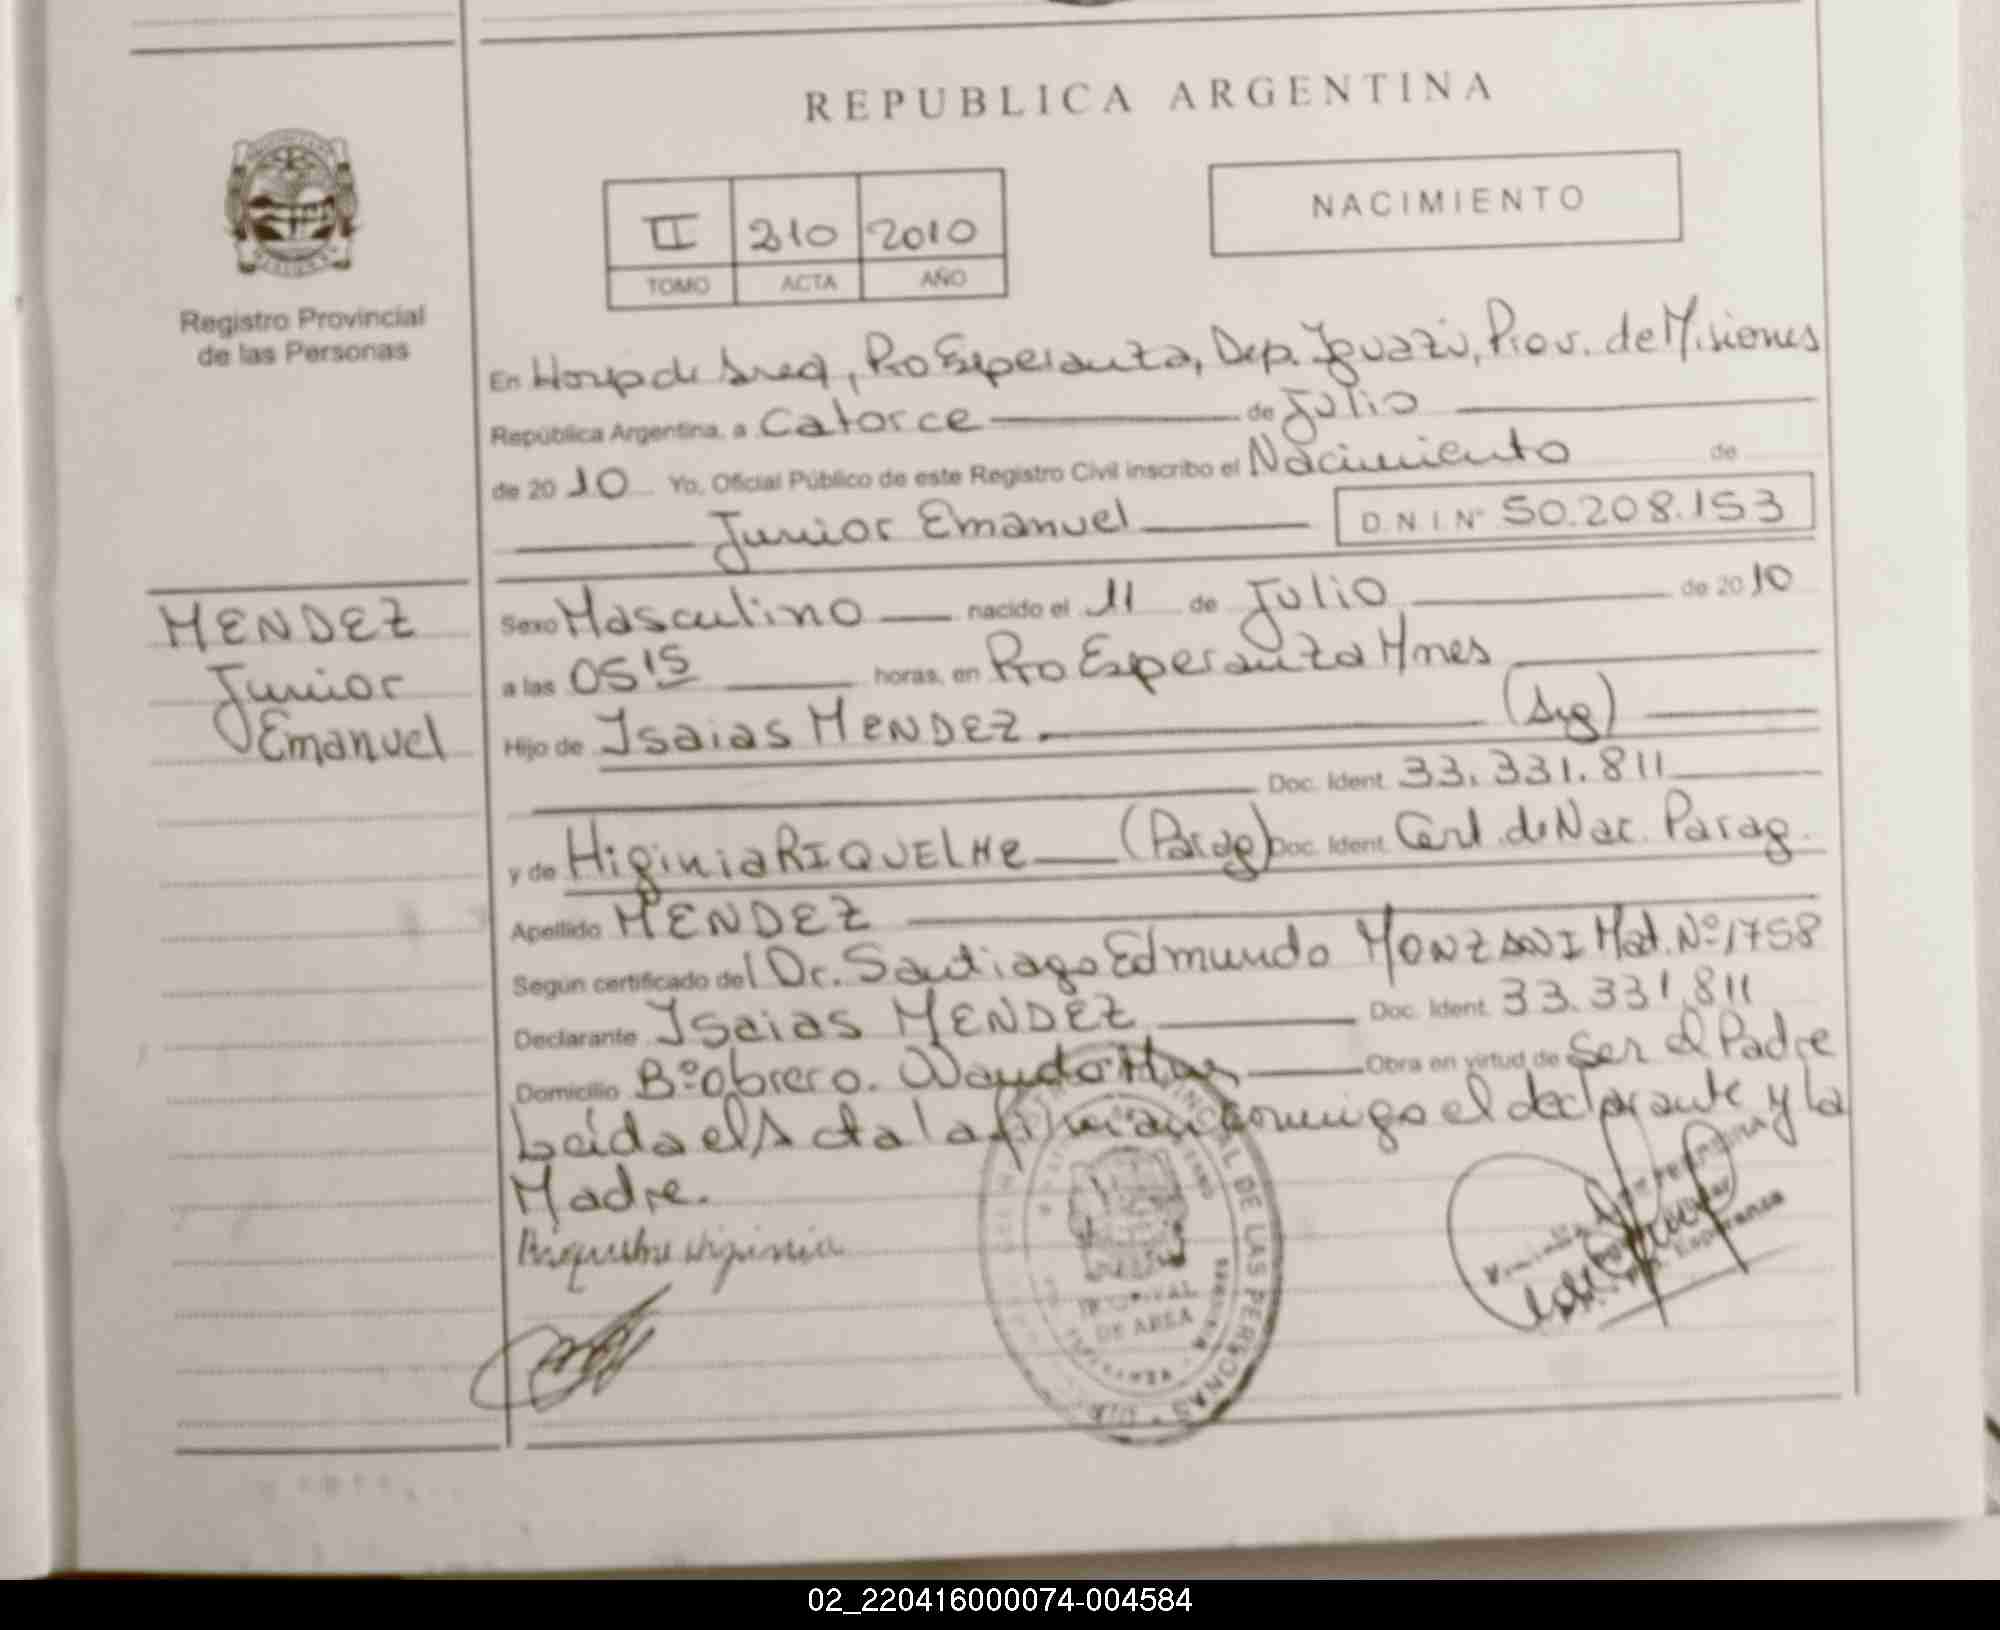 REPUBLICA ARGENTINA
NACIMIENTO
II 210 2010
TOMO ACTA AÑO
Registro Provincial
de las Personas
En Hosp de Area, Pto Esperanza, Dep. Iguazú, Prov. de Misiones
República Argentina, a Catorce de Julio
de 2010 Yo, Oficial Público de este Registro Civil inscribo el Nacimiento de
Junior Emanuel D N I Nº 50.208.153
MENDEZ
Junior
Emanuel
Sexo Masculino nacido el 11 de Julio de 2010
a las 05 15 horas, en Pto Esperanza Mnes
Hijo de Isaias MENDEZ. (Arg)
Doc. Ident. 33.331.811
y de Higinia RIQUELME (Parag) Doc. Ident. Cert. de Nac. Parag.
Apellido MENDEZ
Según certificado del Dr. Santiago Edmundo MONZANI Mat. Nº 1758
Declarante Isaias MENDEZ Doc. Ident. 33.331.811
Domicilio Bº Obrero. Wanda Mnes Obra en virtud de Ser el Padre
Leída el Acta la firman conmigo el declarante y la
Madre.
Riquelme Higinia
HOSPITAL
DE AREA
DE LAS PERSONAS
Esperanza
02_220416000074-004584